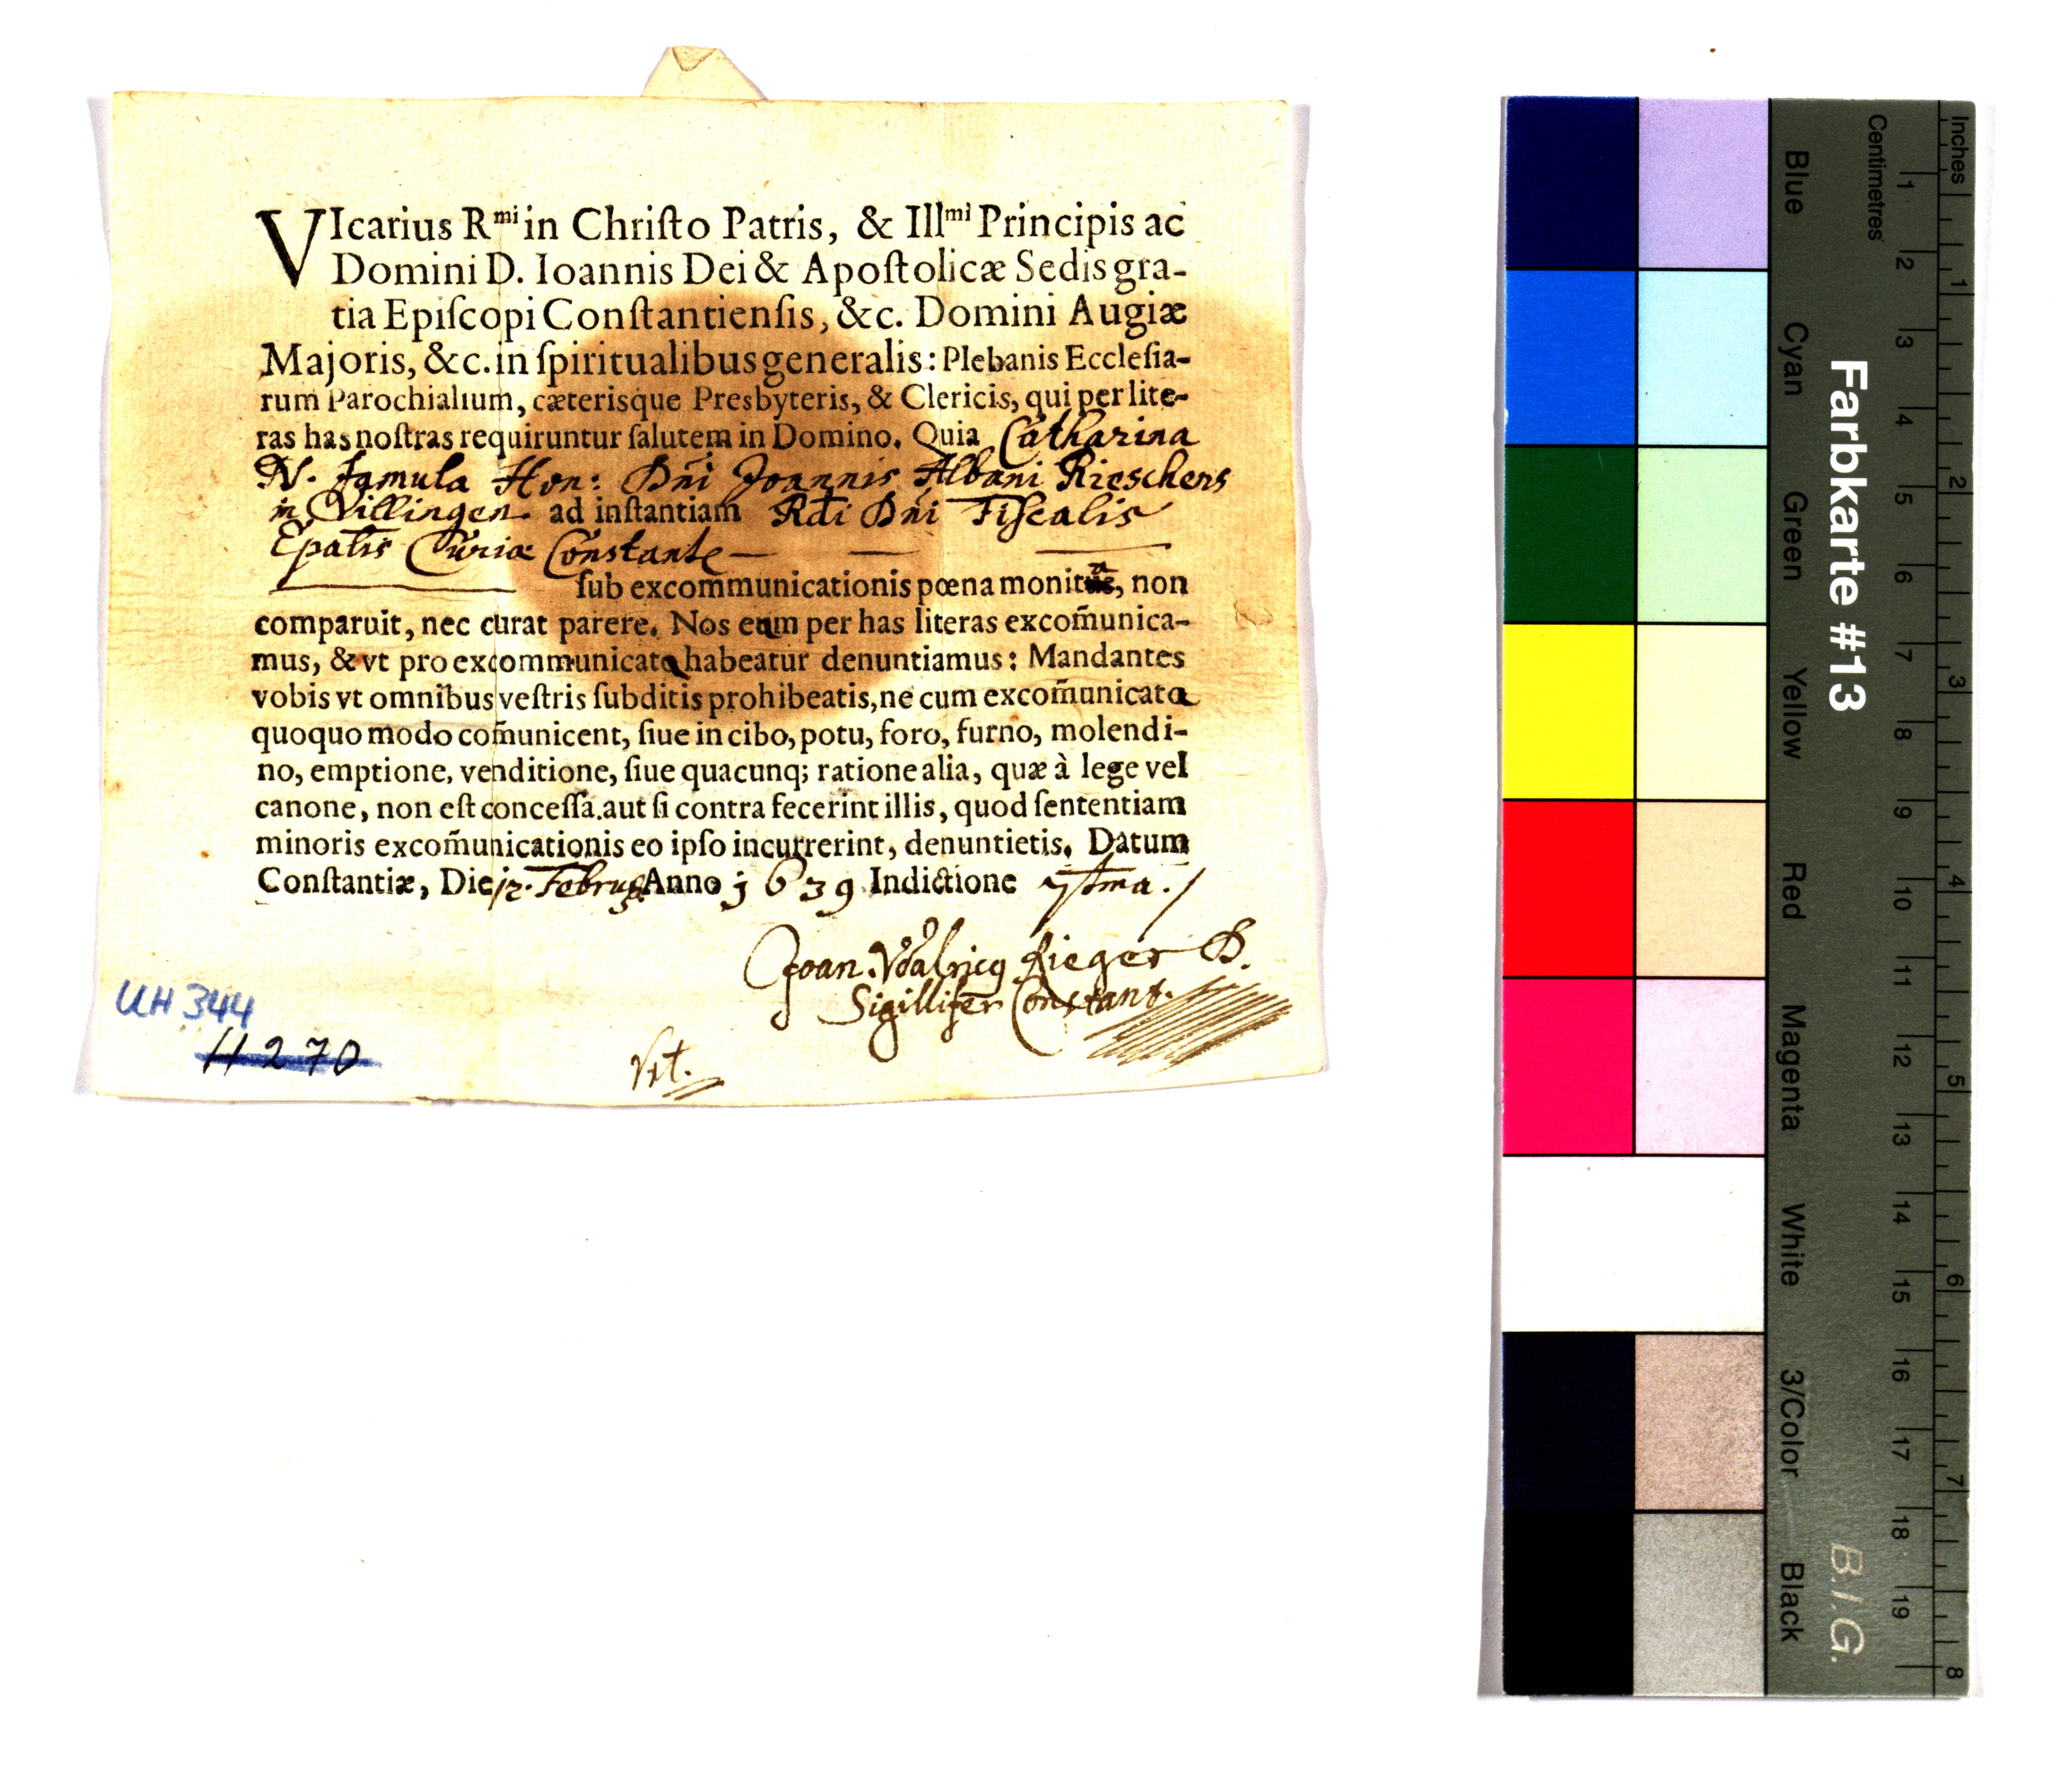 VIcarius Rmi in Chriſto Patris, & Illmi Principis ac
Domini D. Ioannis Dei & Apoſtolicæ Sedis gra-
tia Epiſcopi Conſtantienſis, &c. Domini Augiæ
Majoris, &c. in ſpiritualibus generalis: Plebanis Eccleſia-
rum Parochialium, cæterisque Presbyteris, & Clericis, qui per lite-
ras has noſtras requiruntur ſalutem in Domino. Quia Catharina
N. famula Hon: Dñi Joannis Albani Rieschers
in Villingen ad inſtantiam Rdi Dñi Fiſcalis
Epalis Curiæ Constante
ſub excommunicationis pœna monita, non
comparuit, nec curat parere. Nos eam per has literas excom̃unica-
mus, & vt pro excommunicata habeatur denuntiamus: Mandantes
vobis vt omnibus veſtris ſubditis prohibeatis, ne cum excom̃unicata
quoquo modo com̃unicent, ſiue in cibo, potu, foro, furno, molendi-
no, emptione, venditione, ſiue quacunq; ratione alia, quæ à lege vel
canone, non eſt conceſſa. aut ſi contra fecerint illis, quod ſententiam
minoris excom̃unicationis eo ipſo incurrerint, denuntietis. Datum
Conſtantiæ, Die 12. Februarij Anno 1639 Indictione 7tma.
Joan. Vdalricg Rieger D.
Sigillifer Constant.
UH 344
H 270
Farbkarte #13
B.I.G.
Inches 1 2 3 4 5 6 7 8
Centimetres 1 2 3 4 5 6 7 8 9 10 11 12 13 14 15 16 17 18 19
Blue Cyan Green Yellow Red Magenta White 3/Color Black